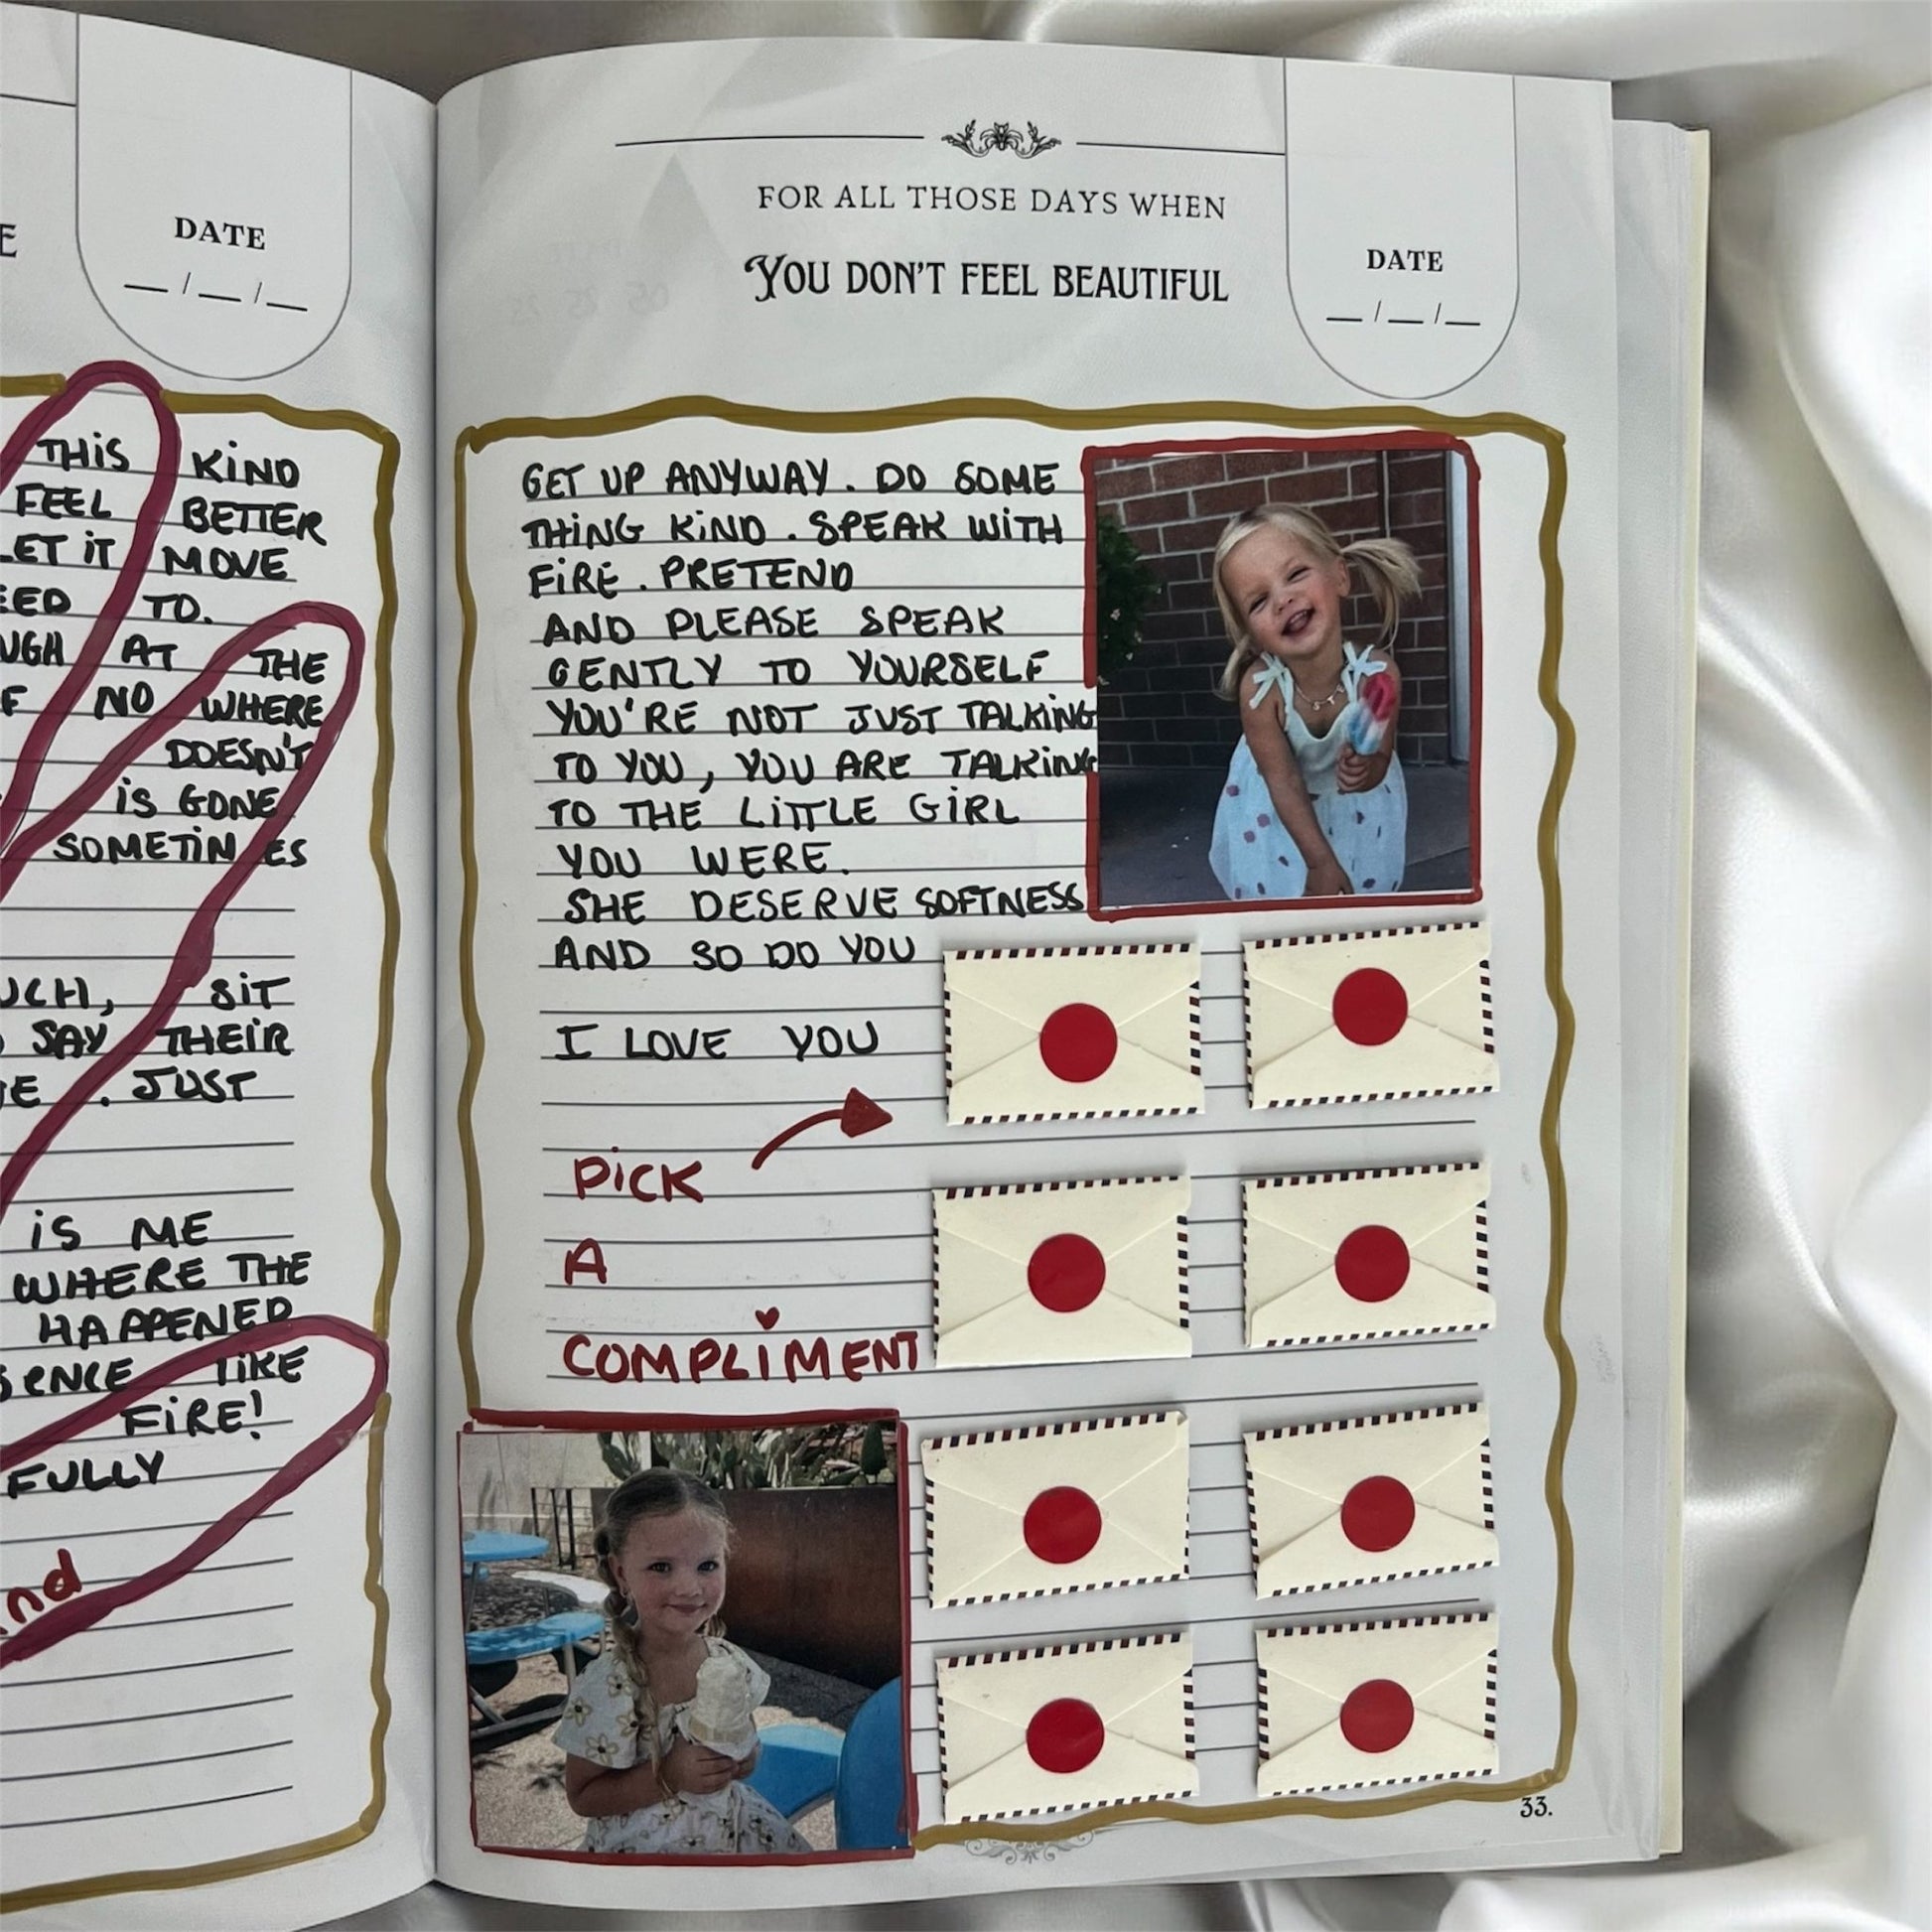 E
DATE
__/__/__
THIS KIND
FEEL BETTER
LET IT MOVE
TO.
AT THE
NO WHERE
DOESN'T
IS GONE
SOMETIMES
SIT
SAY THEIR
. JUST
IS ME
WHERE THE
HAPPENED
LIKE
FIRE!
FULLY
FOR ALL THOSE DAYS WHEN
YOU DON'T FEEL BEAUTIFUL
DATE
__/__/__
GET UP ANYWAY. DO SOME
THING KIND. SPEAK WITH
FIRE. PRETEND
AND PLEASE SPEAK
GENTLY TO YOURSELF
YOU'RE NOT JUST TALKING
TO YOU, YOU ARE TALKING
TO THE LITTLE GIRL
YOU WERE.
SHE DESERVE SOFTNESS
AND SO DO YOU
I LOVE YOU
PICK
A
COMPLIMENT
33.